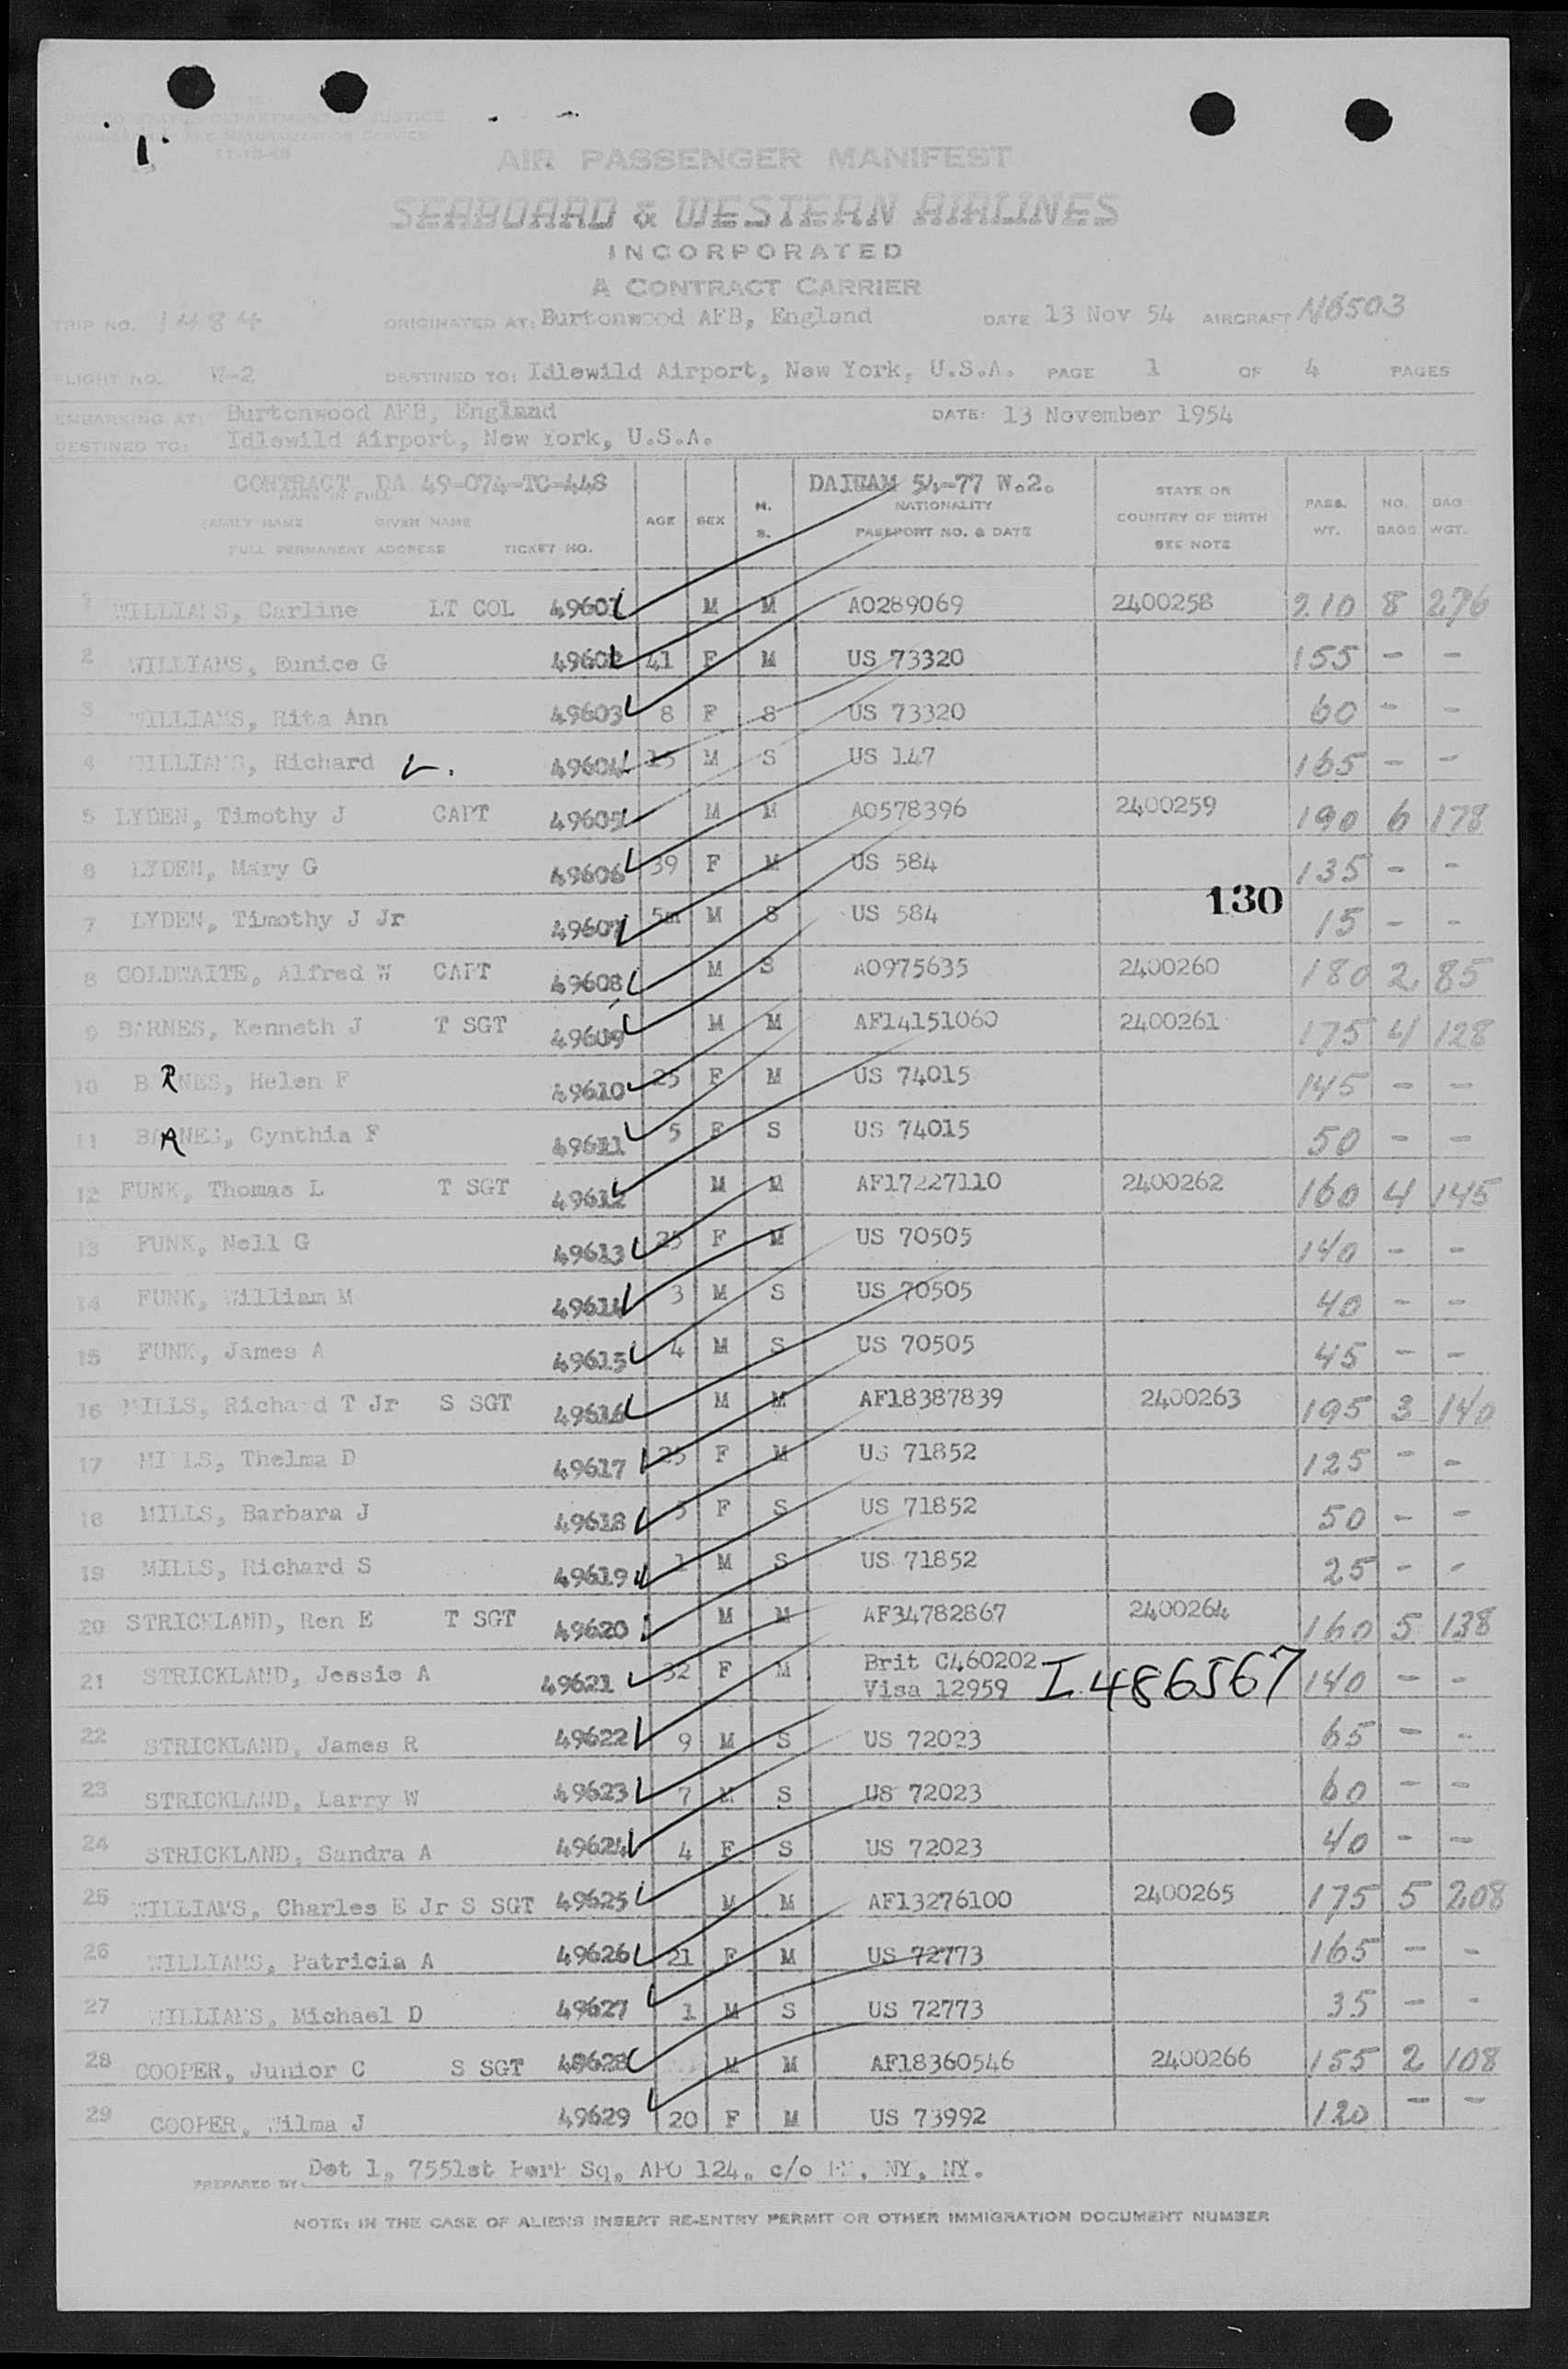 UNITED STATES DEPARTMENT OF JUSTICE
IMMIGRATION AND NATURALIZATION SERVICE
AIR PASSENGER MANIFEST
SEABOARD & WESTERN AIRLINES
INCORPORATED
A CONTRACT CARRIER
TRIP NO. 1484 ORIGINATED AT: Burtonwood AFB, England DATE 13 Nov 54 AIRCRAFT N6503
FLIGHT NO. W-2 DESTINED TO: Idlewild Airport, New York, U.S.A. PAGE 1 OF 4 PAGES
EMBARKING AT: Burtonwood AFB, England DATE: 13 November 1954
DESTINED TO: Idlewild Airport, New York, U.S.A.
CONTRACT DA 49-074-TC-448 DAIEAM 54-77 W.2.
NAME IN FULL
FAMILY NAME GIVEN NAME
FULL PERMANENT ADDRESS TICKET NO. AGE SEX M. S. NATIONALITY PASSPORT NO. & DATE STATE OR COUNTRY OF BIRTH SEE NOTE PASS. WT. NO. BAGS BAG WGT.
1 WILLIAMS, Carline LT COL 49601 M M AO289069 2400258 210 8 276
2 WILLIAMS, Eunice G 49602 41 F M US 73320 155 - -
3 WILLIAMS, Rita Ann 49603 8 F S US 73320 60 - -
4 WILLIAMS, Richard L. 49604 15 M S US 147 165 - -
5 LYDEN, Timothy J CAPT 49605 M M AO578396 2400259 190 6 178
6 LYDEN, Mary G 49606 39 F M US 584 135 - -
130
7 LYDEN, Timothy J Jr 49607 5m M S US 584 15 - -
8 GOLDWAITE, Alfred W CAPT 49608 M S AO975635 2400260 180 2 85
9 BARNES, Kenneth J T SGT 49609 M M AF14151060 2400261 175 4 128
10 BARNES, Helen F 49610 25 F M US 74015 145 - -
11 BARNES, Cynthia F 49611 5 F S US 74015 50 - -
12 FUNK, Thomas L T SGT 49612 M M AF17227110 2400262 160 4 145
13 FUNK, Nell G 49613 25 F M US 70505 140 - -
14 FUNK, William M 49614 3 M S US 70505 40 - -
15 FUNK, James A 49615 4 M S US 70505 45 - -
16 MILLS, Richard T Jr S SGT 49616 M M AF18387839 2400263 195 3 140
17 MILLS, Thelma D 49617 25 F M US 71852 125 - -
18 MILLS, Barbara J 49618 3 F S US 71852 50 - -
19 MILLS, Richard S 49619 1 M S US 71852 25 - -
20 STRICKLAND, Ren E T SGT 49620 M M AF34782867 2400264 160 5 138
21 STRICKLAND, Jessie A 49621 32 F M Brit C460202 Visa 12959 I 486567 140 - -
22 STRICKLAND, James R 49622 9 M S US 72023 65 - -
23 STRICKLAND, Larry W 49623 7 M S US 72023 60 - -
24 STRICKLAND, Sandra A 49624 4 F S US 72023 40 - -
25 WILLIAMS, Charles E Jr S SGT 49625 M M AF13276100 2400265 175 5 208
26 WILLIAMS, Patricia A 49626 21 F M US 72773 165 - -
27 WILLIAMS, Michael D 49627 1 M S US 72773 35 - -
28 COOPER, Junior C S SGT 49628 M M AF18360546 2400266 155 2 108
29 COOPER, Wilma J 49629 20 F M US 73992 120 - -
PREPARED BY: Det 1, 7551st Sq, APO 124, c/o NY, NY.
NOTE: IN THE CASE OF ALIENS INSERT RE-ENTRY PERMIT OR OTHER IMMIGRATION DOCUMENT NUMBER